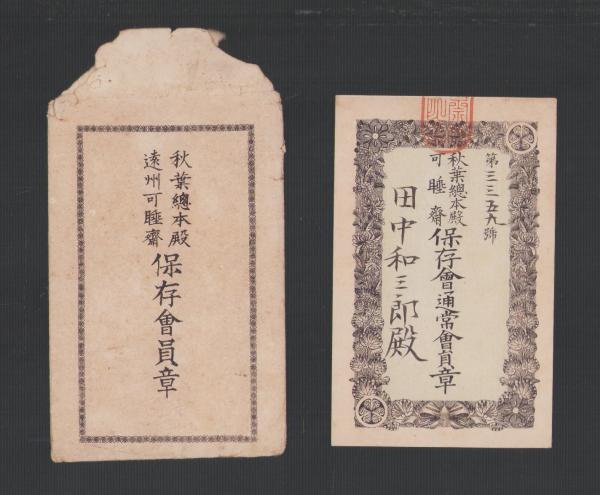 秋葉總本殿
遠州可睡齋
保存會員章
第三三五九號
秋葉總本殿
可睡齋
保存會通常會員章
田中和三郎殿